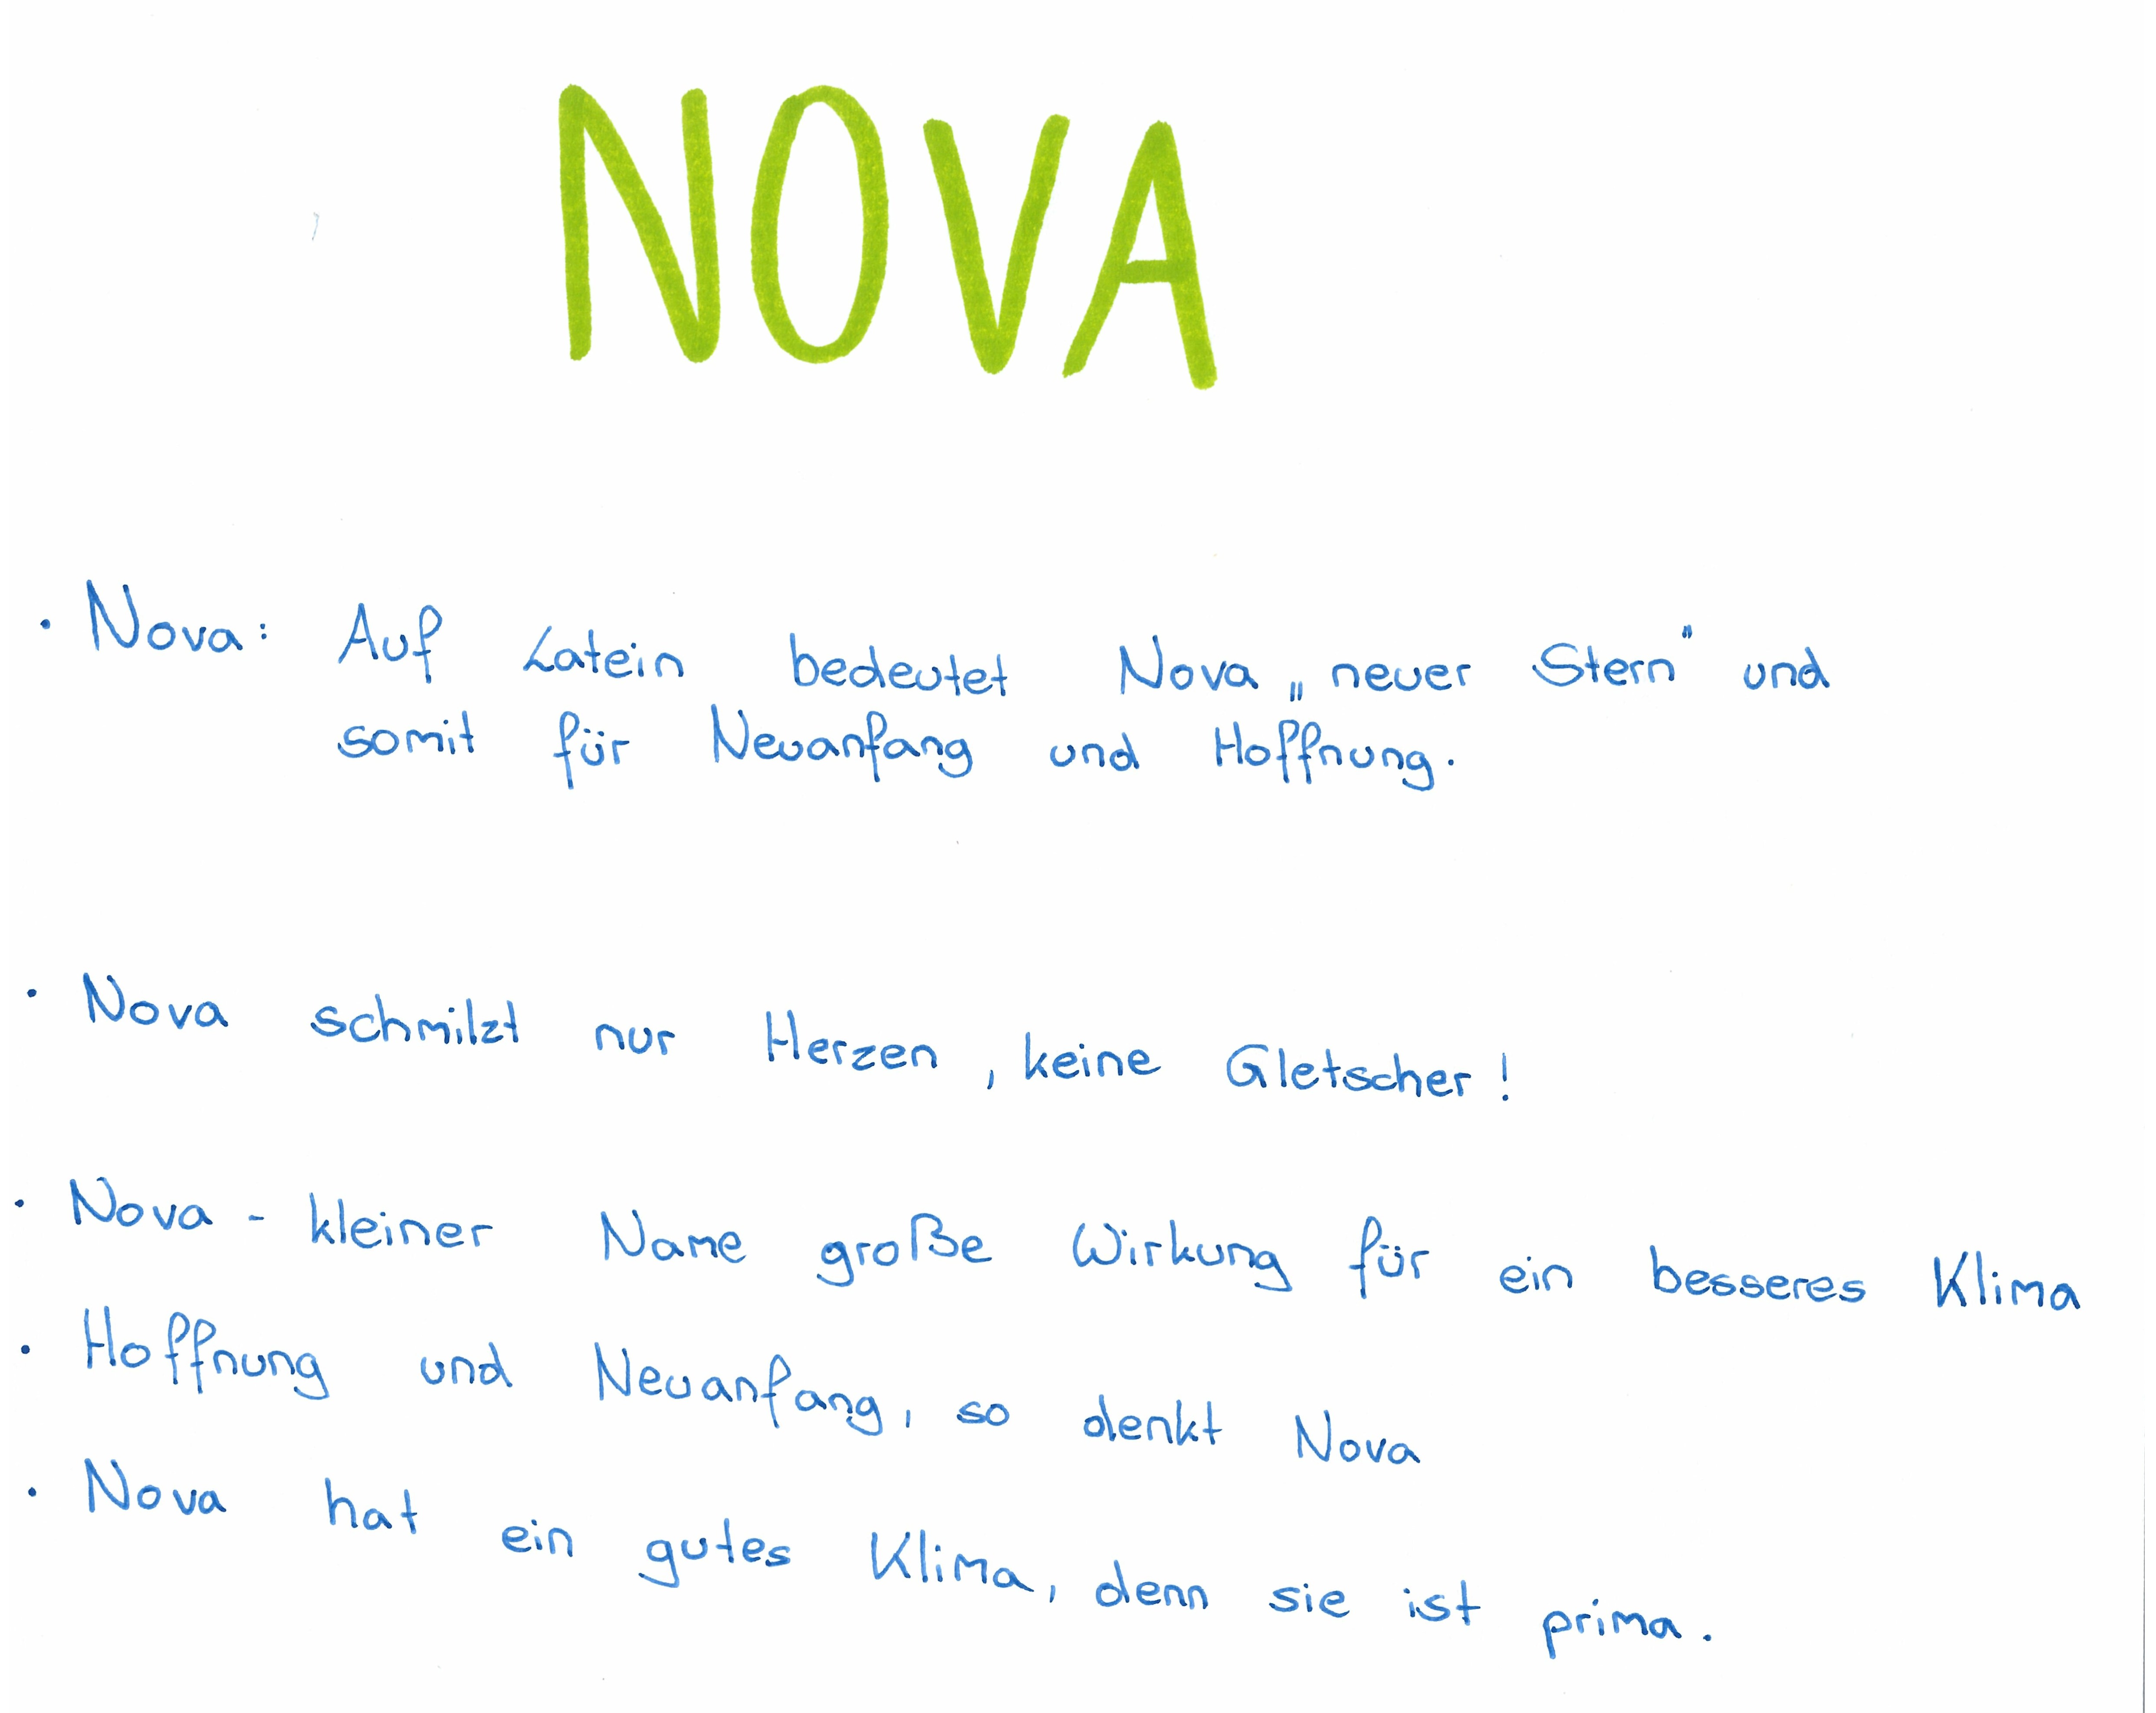 NOVA
· Nova: Auf Latein bedeutet Nova „neuer Stern" und
somit für Neuanfang und Hoffnung.
· Nova schmilzt nur Herzen, keine Gletscher!
· Nova - kleiner Name große Wirkung für ein besseres Klima
· Hoffnung und Neuanfang, so denkt Nova
· Nova hat ein gutes Klima, denn sie ist prima.